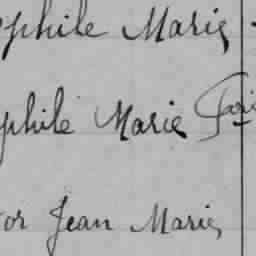 phile Marie
phile Marie
or Jean Marie